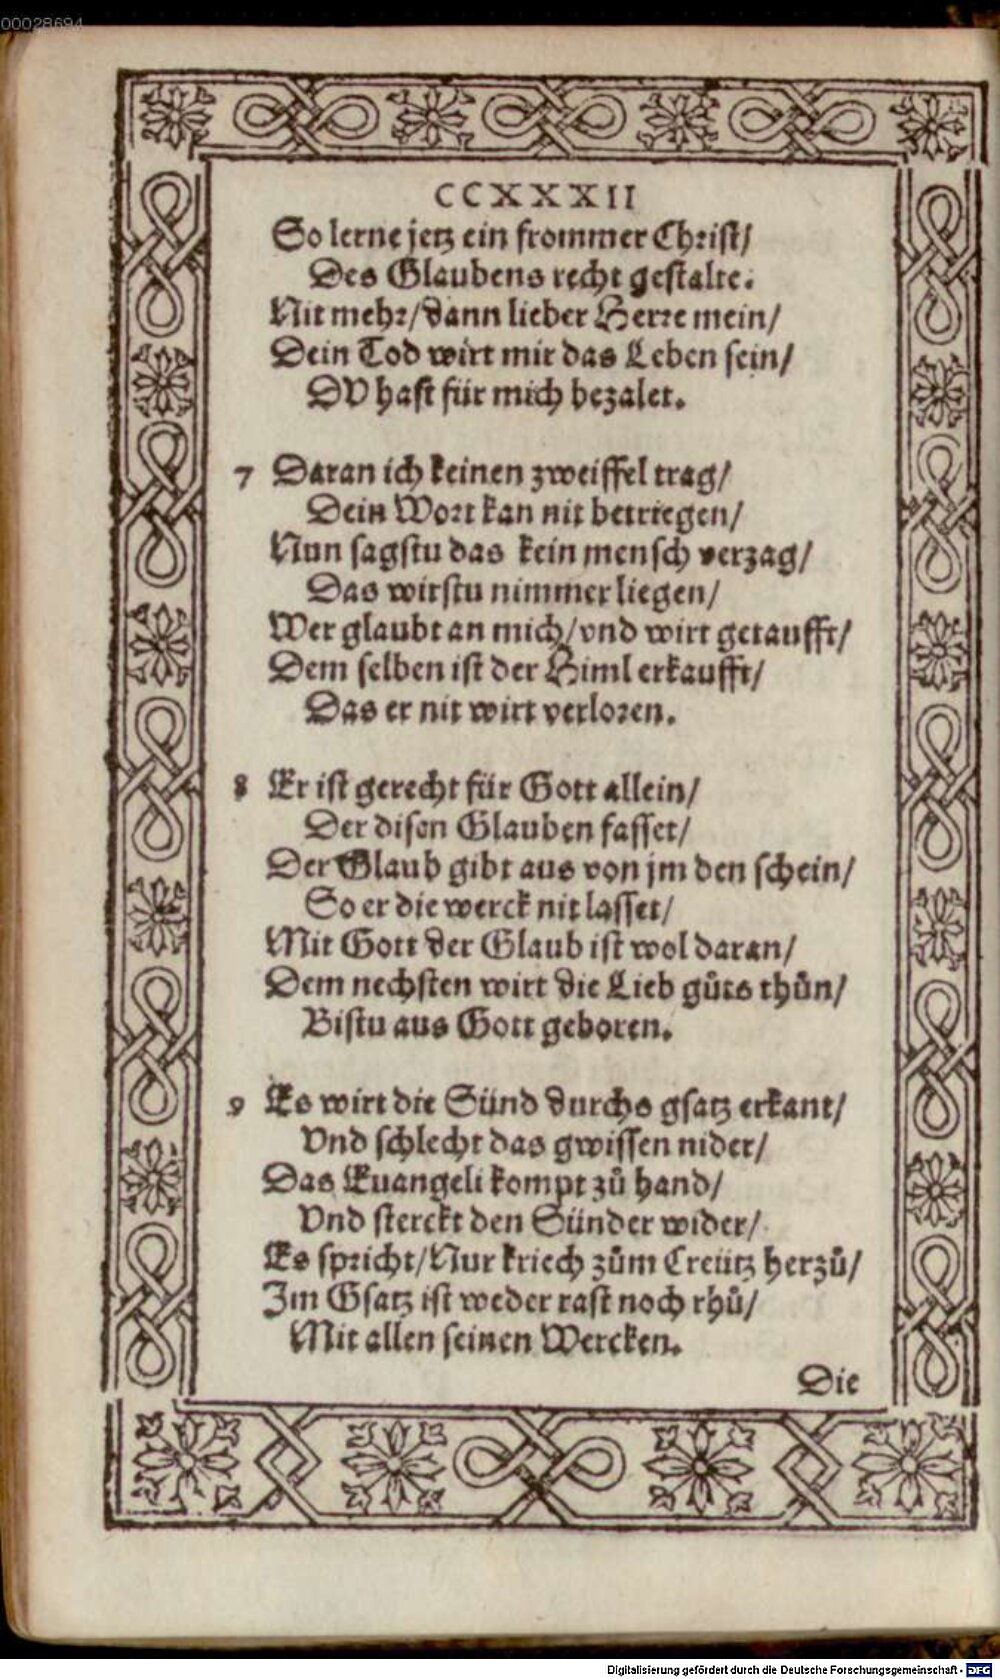 00028694
CCXXXII
So lerne jetz ein frommer Christ/
Des Glaubens recht gestalte.
Nit mehr/dann lieber Herre mein/
Dein Tod wirt mir das Leben sein/
DV hast für mich bezalet.
7 Daran ich keinen zweiffel trag/
Dein Wort kan nit betriegen/
Nun sagstu das kein mensch verzag/
Das wirstu nimmer liegen/
Wer glaubt an mich/vnd wirt getaufft/
Dem selben ist der Himl erkaufft/
Das er nit wirt verloren.
8 Er ist gerecht für Gott allein/
Der disen Glauben fasset/
Der Glaub gibt aus von jm den schein/
So er die werck nit lasset/
Mit Gott der Glaub ist wol daran/
Dem nechsten wirt die Lieb gůts thůn/
Bistu aus Gott geboren.
9 Es wirt die Sünd durchs gsatz erkant/
Vnd schlecht das gwissen nider/
Das Euangeli kompt zů hand/
Vnd sterckt den Sünder wider/
Es spricht/Nur kriech zům Creütz herzů/
Im Gsatz ist weder rast noch rhů/
Mit allen seinen Wercken.
Die
Digitalisierung gefördert durch die Deutsche Forschungsgemeinschaft - DFG